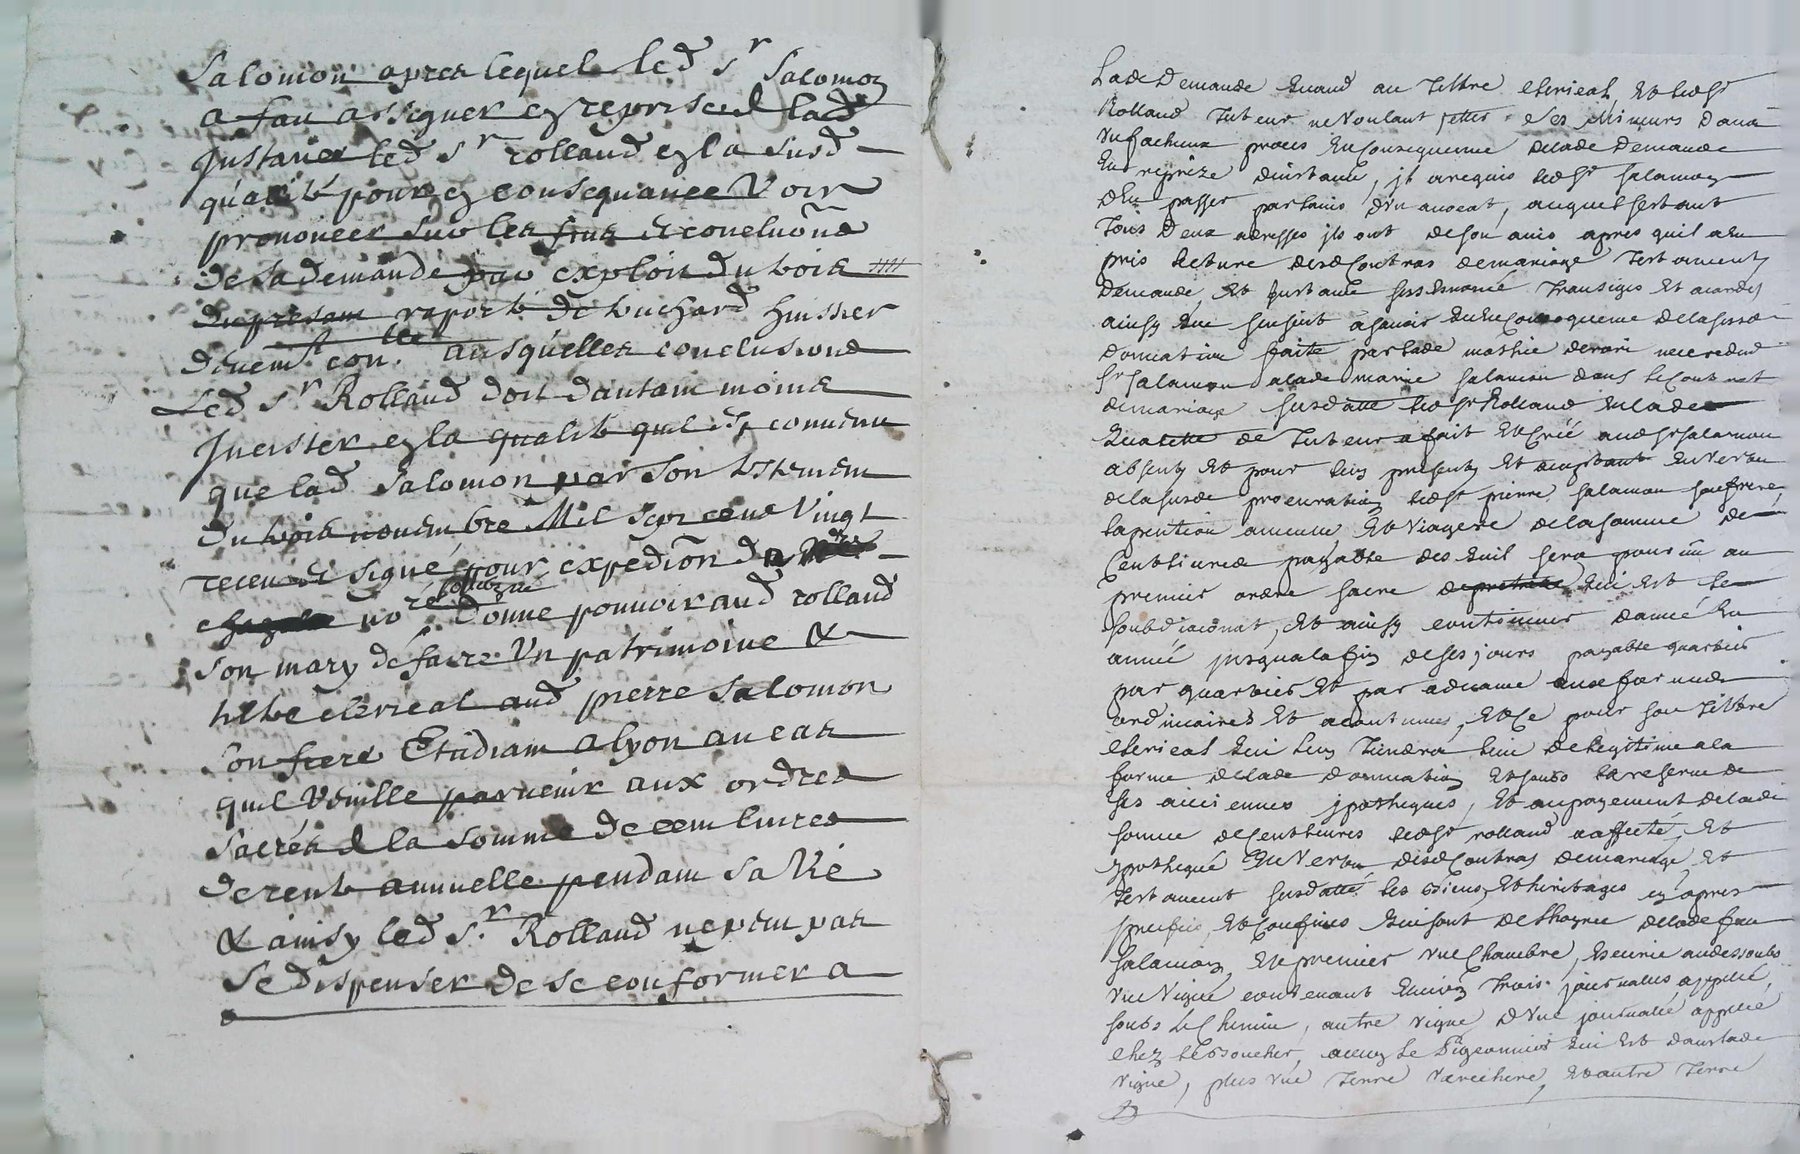 Salomon apres lequel led Sr Salomon
a fait assigner en reprise de lad
Instance led Sr rolland en la susd
qualité pour en consequance Voir
prononcer sur les fins et concluõns
de sa demande par exploit du trois
du present raporté de huissier
ausquelles conclusions
Led Sr Rolland doit dautant moins
Incister en la qualité quil est convenu
que lad Salomon par son testement
du trois novembre Mil sept cent Vingt
receu et signé pour expediõn
no.re donne pouvoir aud rolland
son mary de faire Un patrimoine &
titre clerical aud pierre Salomon
son frere Etudiant a lyon au cas
quil Veuille parvenir aux ordres
sacrés de la somme de cent livres
de rente annuelle pendant sa Vie
& ainsy led Sr. Rolland ne peut pas
se dispenser de se conformer a
Lade Demande quand au Tiltre clerical, et ledsr
Rolland Tuteur ne voulant jetter ses Mineurs dans
un facheux proces en consequence delade demande
en reprize dinstance, il a requis ledsr salamon
den passer par lavis d'un avocat, auquel sestant
Tous deux adressés ils ont de son avis apres quil a eu
pris lecture desd Contras de mariage Testament
demande, et instance transigé et acordé
ainsy que sensuit a savoir en consequence de la susde
donnation faite par lade mathie
sr salamon a lade marie salamon dans le Contract
de mariage susdatté ledsr Rolland en lade
qualitté de Tuteur a fait et créé audsr salamon
absent et pour luy present et aceptant en vertu
de la susde procuration ledsr pierre salamon son frere
la pention annuelle et viagere de la somme de
Cent livres payable des quil sera pourvû au
premier ordre sacré qui est le
soubdiaconat, et ainsy continuer dannée en
année jusqua la fin de ses jours payable quartier
par quartier et par advance aux formes
ordinaires et acoutumées, et ce pour son Tiltre
clerical qui luy Tiendra lieu de legitime a la
forme delade donnation et sous la reserve de
ses anciennes ipotheques, et au payement delade
somme de Cent livres ledsr rolland a affecté et
ypothequé en vertu desd Contras de mariage et
Testament susdatté les biens et heritages cy apres
speciffiés et Confinés qui sont de lhoyrie delade feu
salamon, et premier une Chambre, ecurie audessoubs
une Vigne contenant environ Trois journalés appellé
soubs le Chemin, autre vigne d'une journalée appellé
chez le Boucher, avec le Pigeonnier qui est dans lade
vigne, plus une Terre verchere, et autre Terre